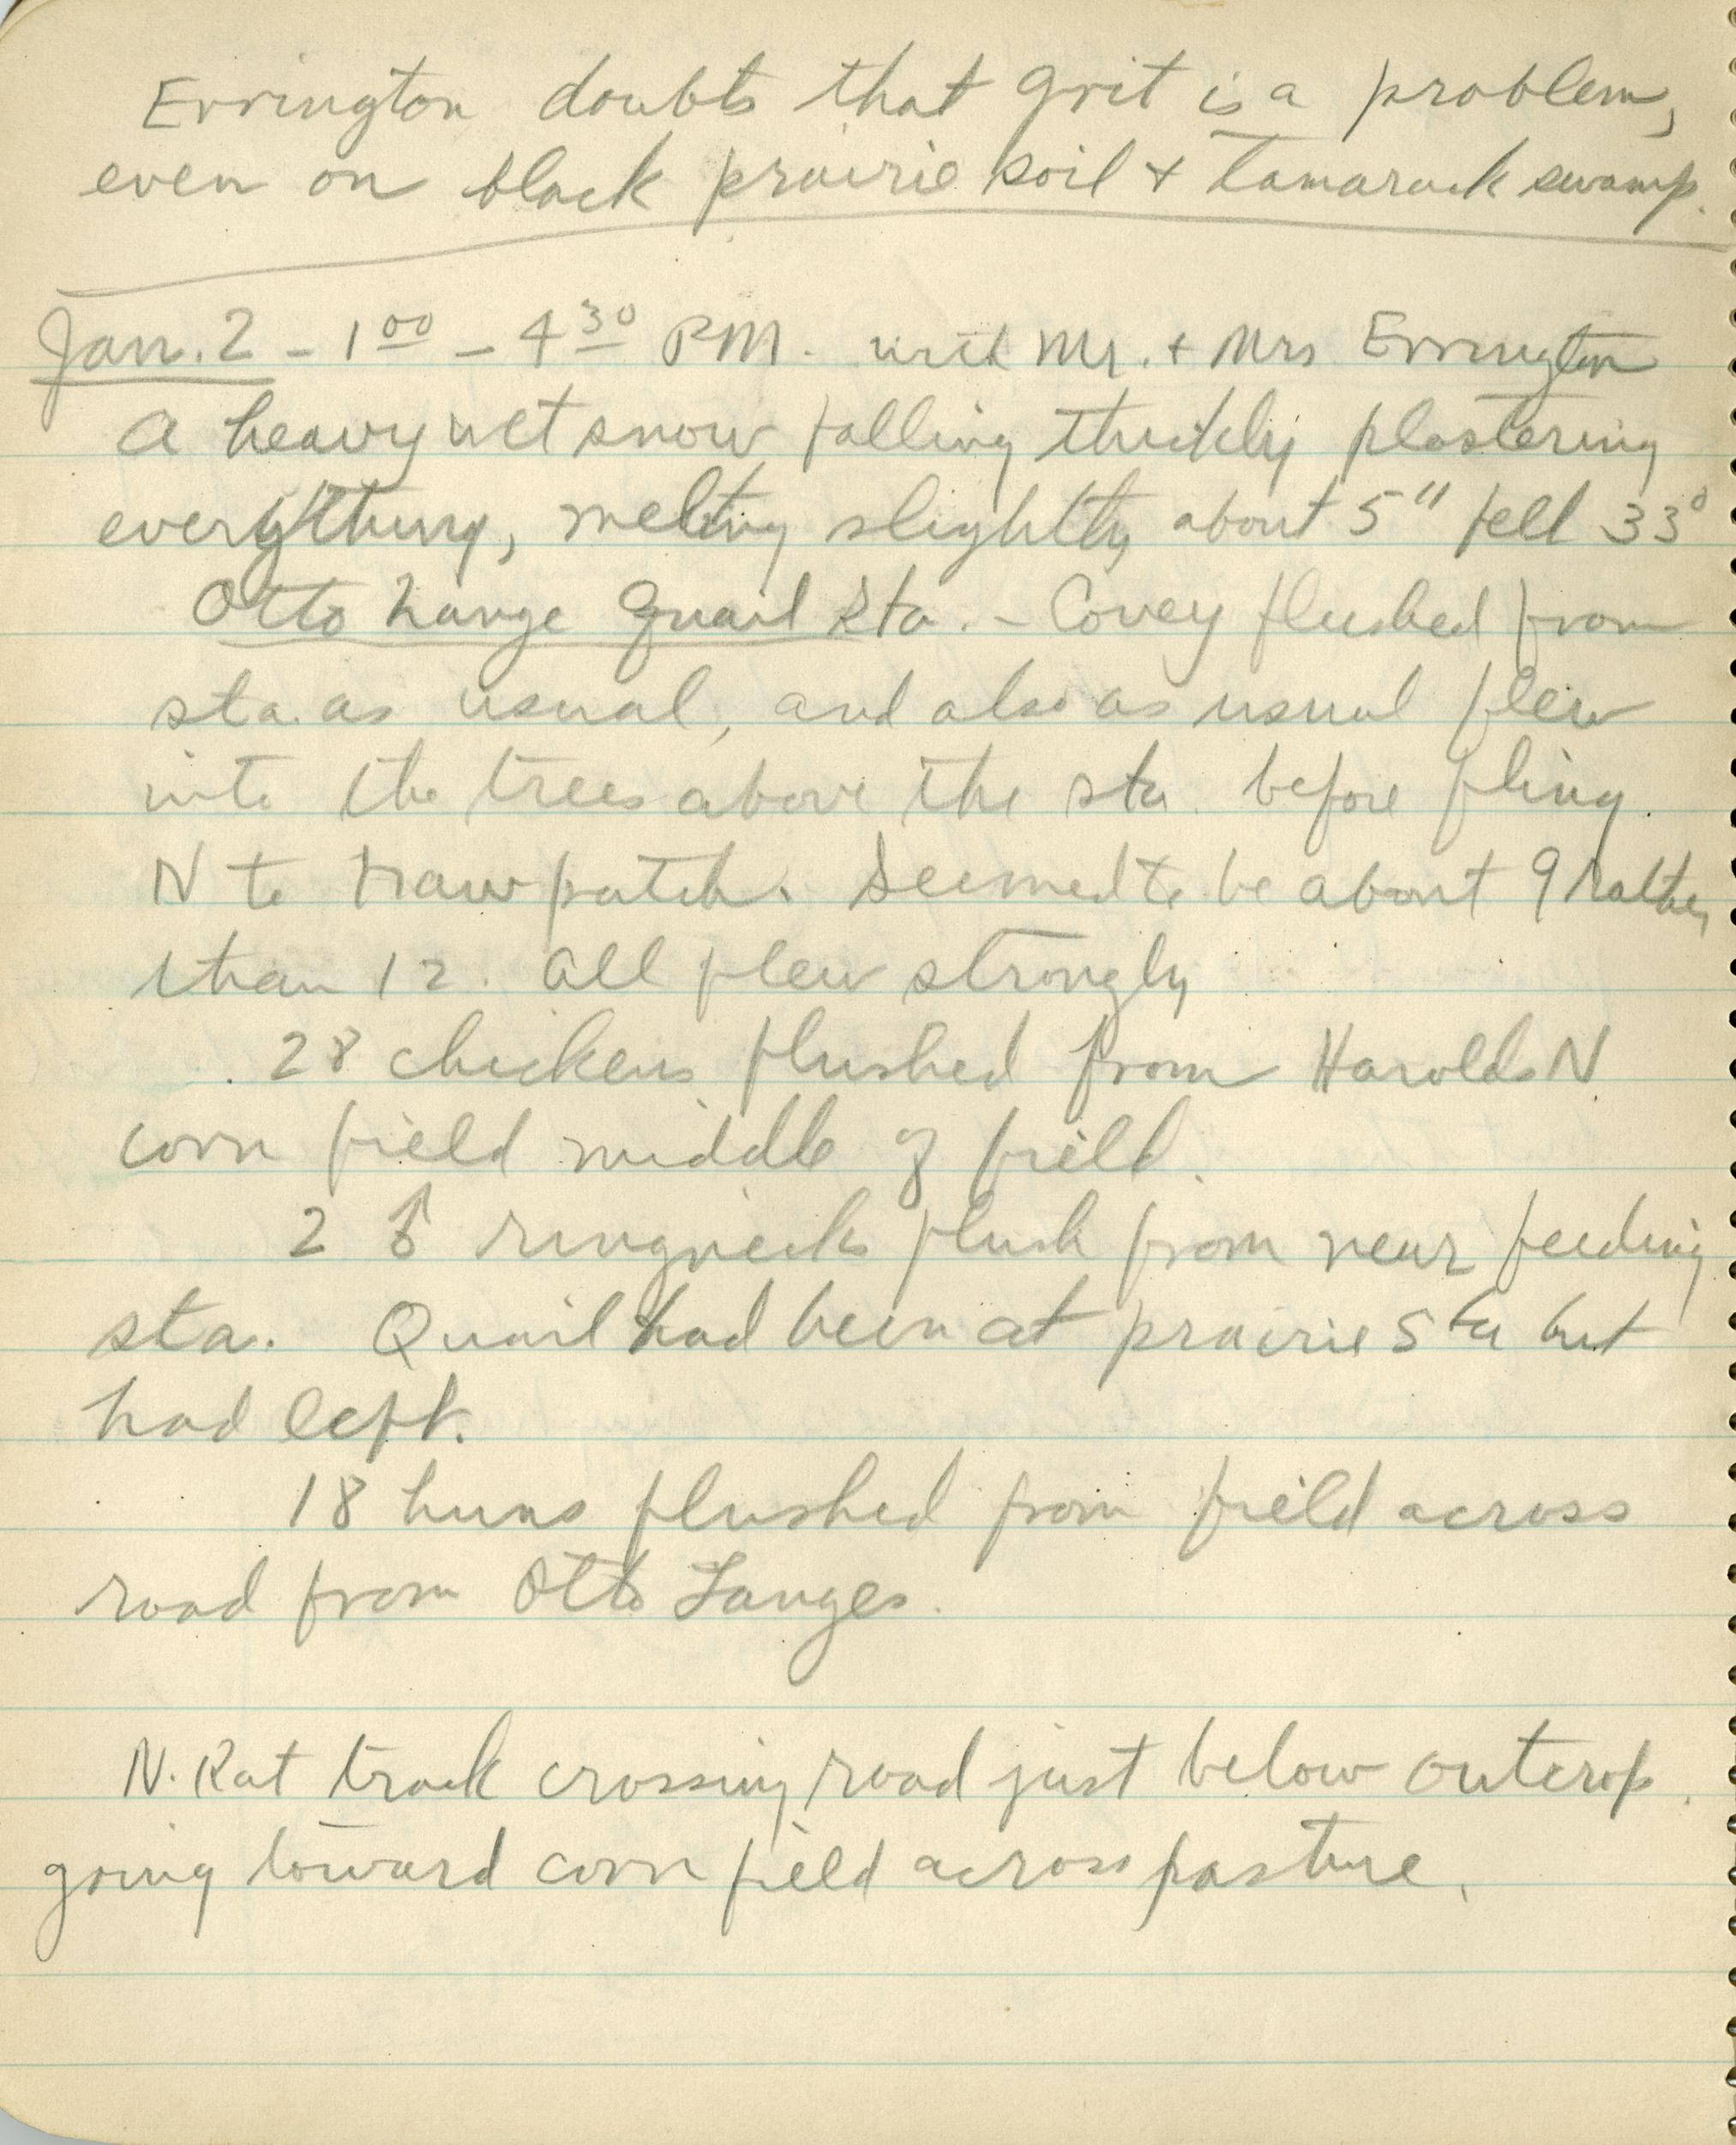 Errington doubts that grit is a problem,
even on black prairie soil + tamarack swamp.
Jan. 2 - 1 00 - 4 30 PM. with Mr. + Mrs Errington
A heavy wet snow falling thickly plastering
everything, melting slightly about 5" fell 33°
Otto Lange Quail Sta. - Covey flushed from
sta. as usual, and also as usual flew
into the trees above the sta. before fling
N to haw patch. Seemed to be about 9 rather
than 12. All flew strongly
28 chickens flushed from Harolds N
corn field middle of field.
2 ♂ ringnecks flush from near feeding
sta. Quail had been at prairie Sta but
had left.
18 huns flushed from field across
road from Otto Langes.
N. Rat track crossing road just below outcrop.
going toward corn field across pasture.